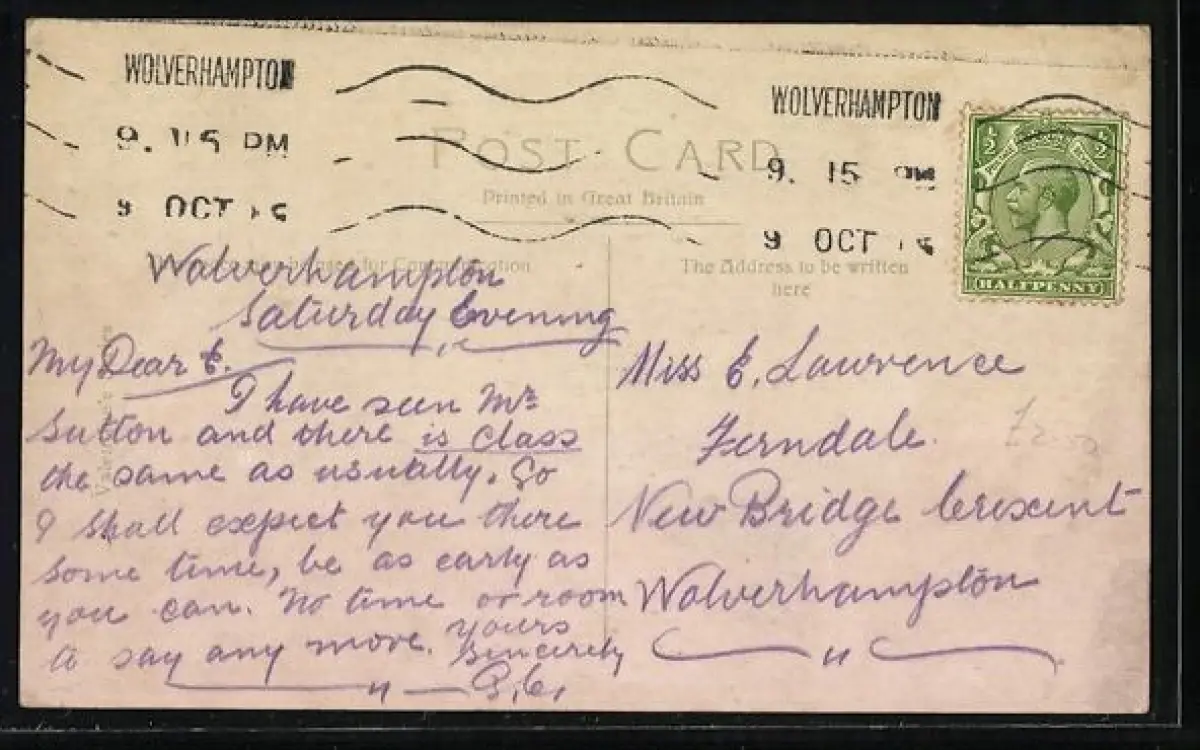 WOLVERHAMPTON
9. 15 PM
9 OCT
WOLVERHAMPTON
9. 15 PM
9 OCT
POST CARD
Printed in Great Britain
½ ½
HALFPENNY
for Communication
The Address to be written
here
Wolverhampton
Saturday Evening
My Dear E.
I have seen Mr
Sutton and there is class
the same as usually. So
I shall expect you there
some time, be as early as
you can. No time or room
to say any more. yours
sincerely
Miss E. Lawrence
Ferndale.
New Bridge Crescent
Wolverhampton